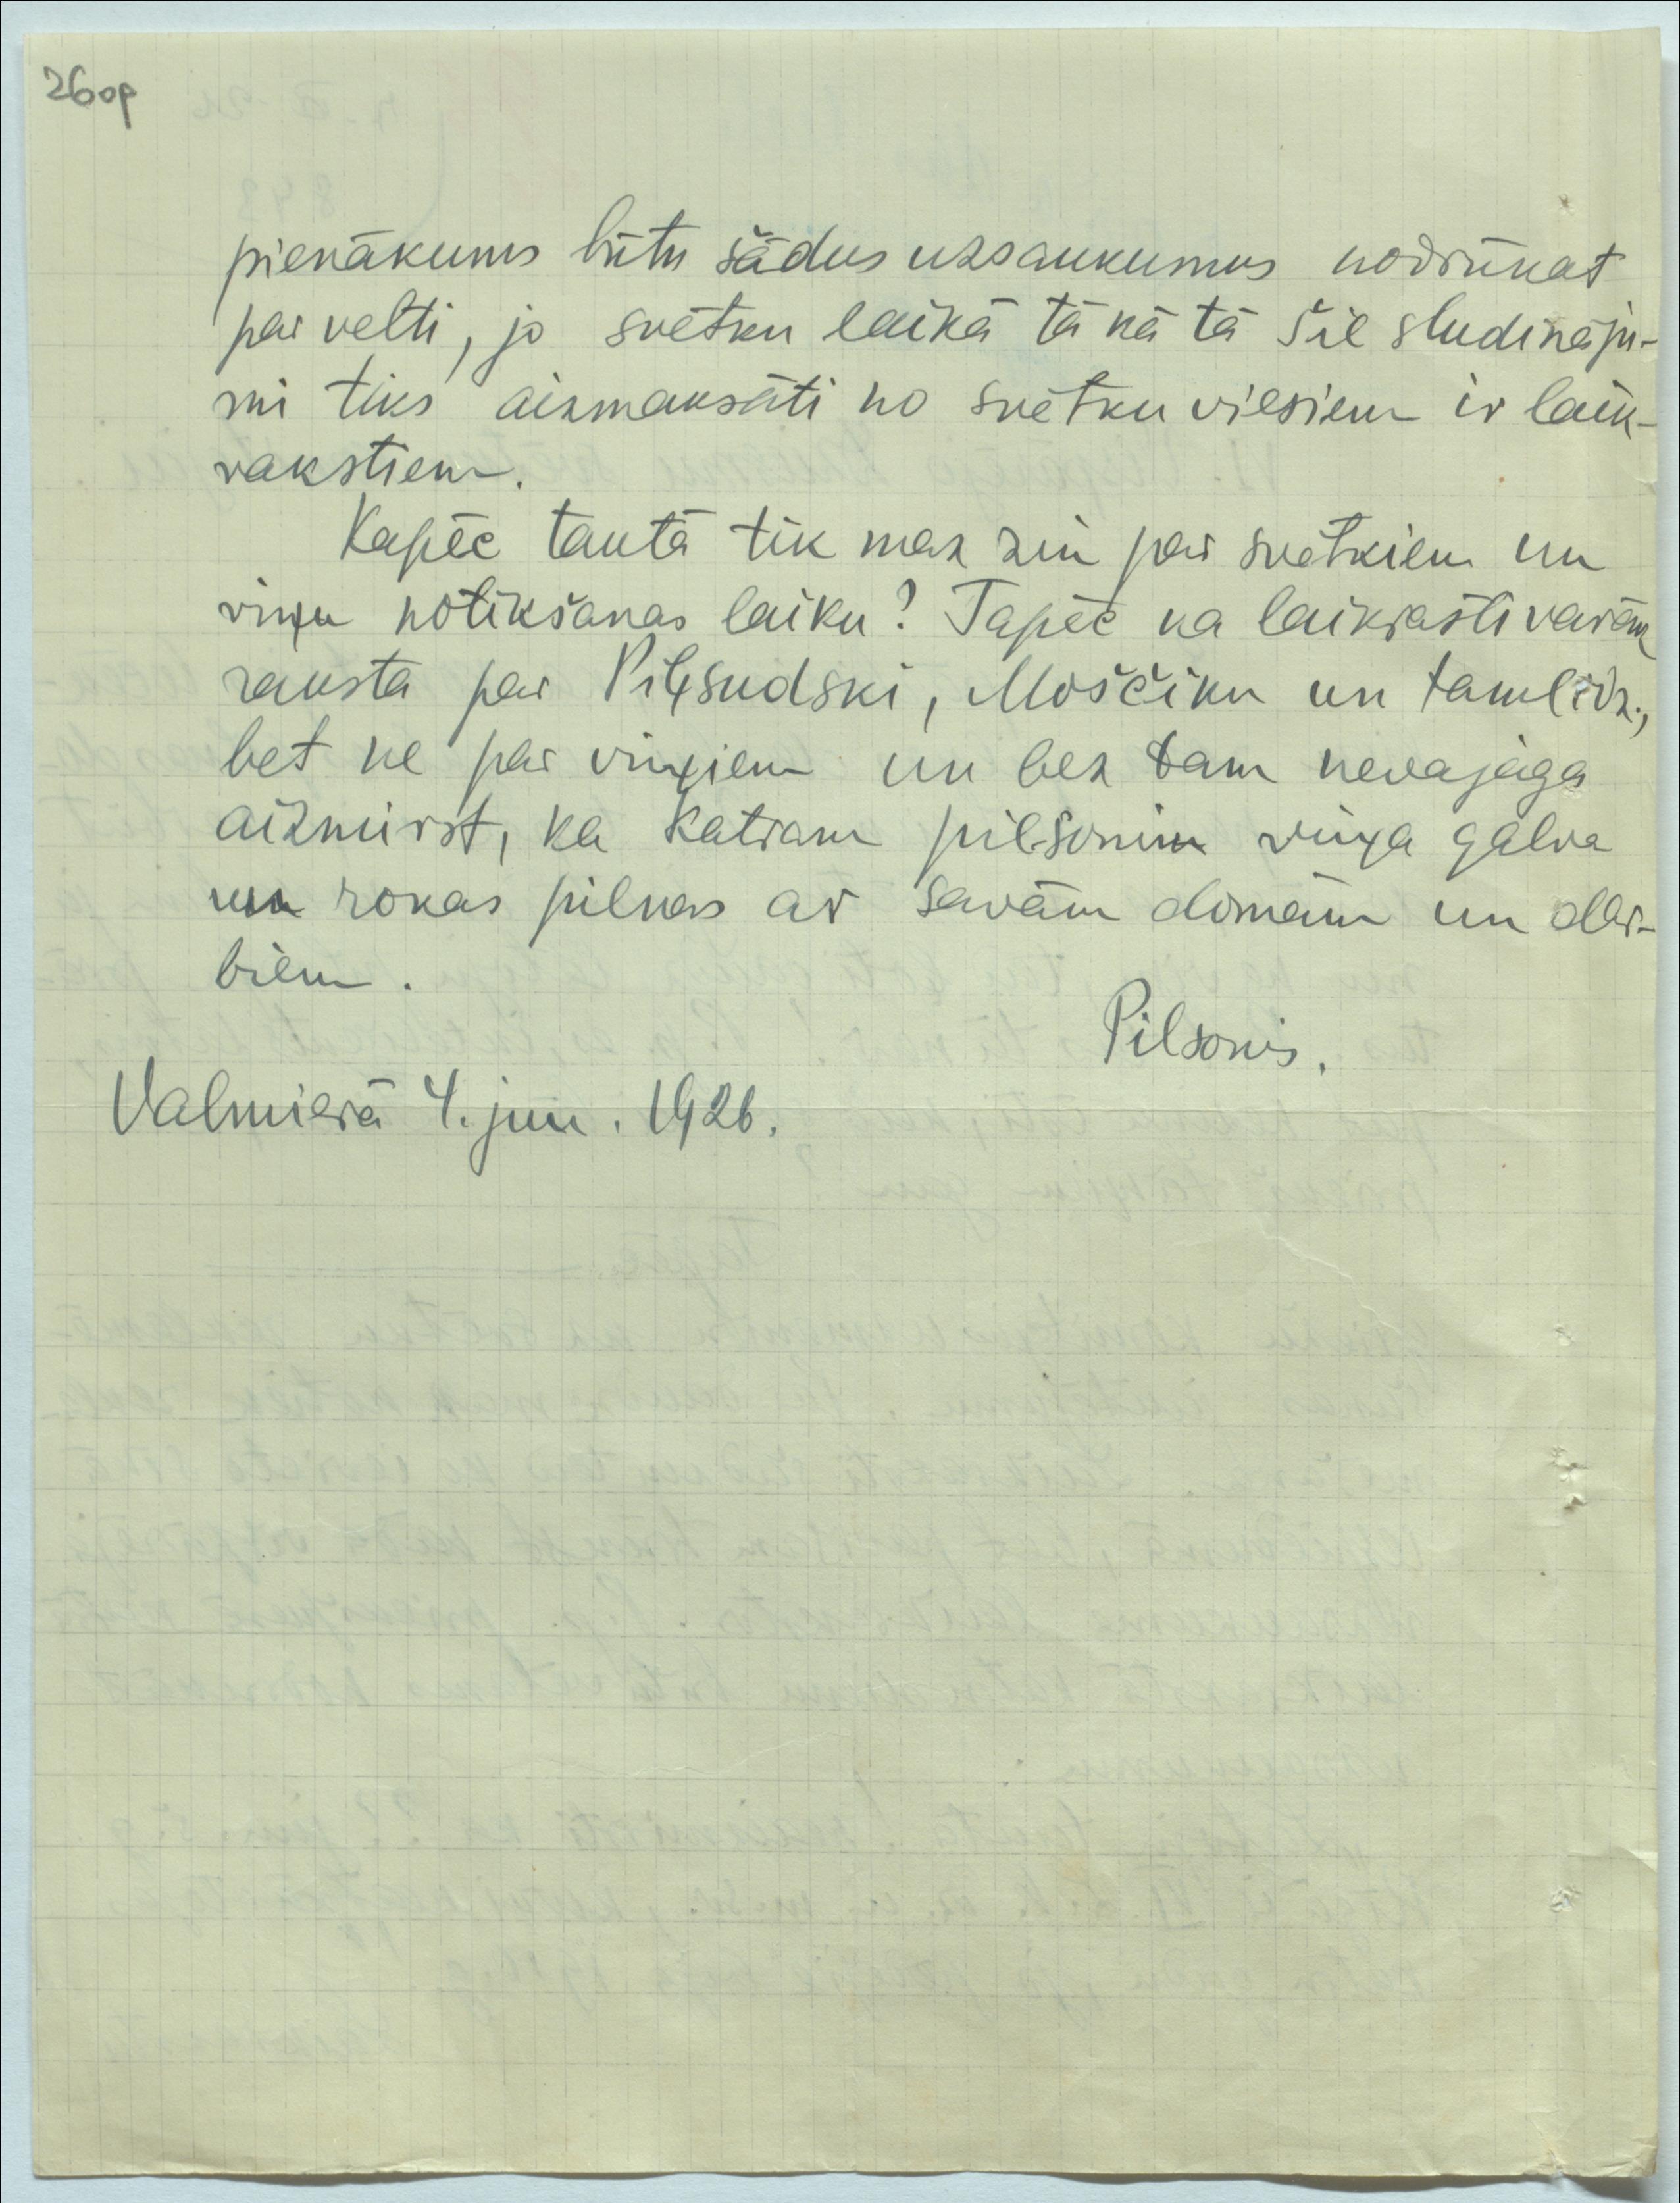 26 op
pienākums būtu šādus uzsaukumus nodrukāt
par velti, jo svētku laikā tā kā tā šie sludināju-
mi tiks aizmaksāti no svētku viesiem ir laik-
rakstiem.
Kapēc tautā tik maz zin par svētkiem un
viņu notikšanas laiku? Tapēc ka laikrasti varām
raksta par Piļsudski, Moščiku un tamlīdz.,
bet ne par viņiem un bez tam nevajaga
aizmirst, ka katram pilsonim viņa galva
un rokas pilnas ar savām domām un dar-
biem.
Pilsonis.
Valmierā 4. jun. 1926.